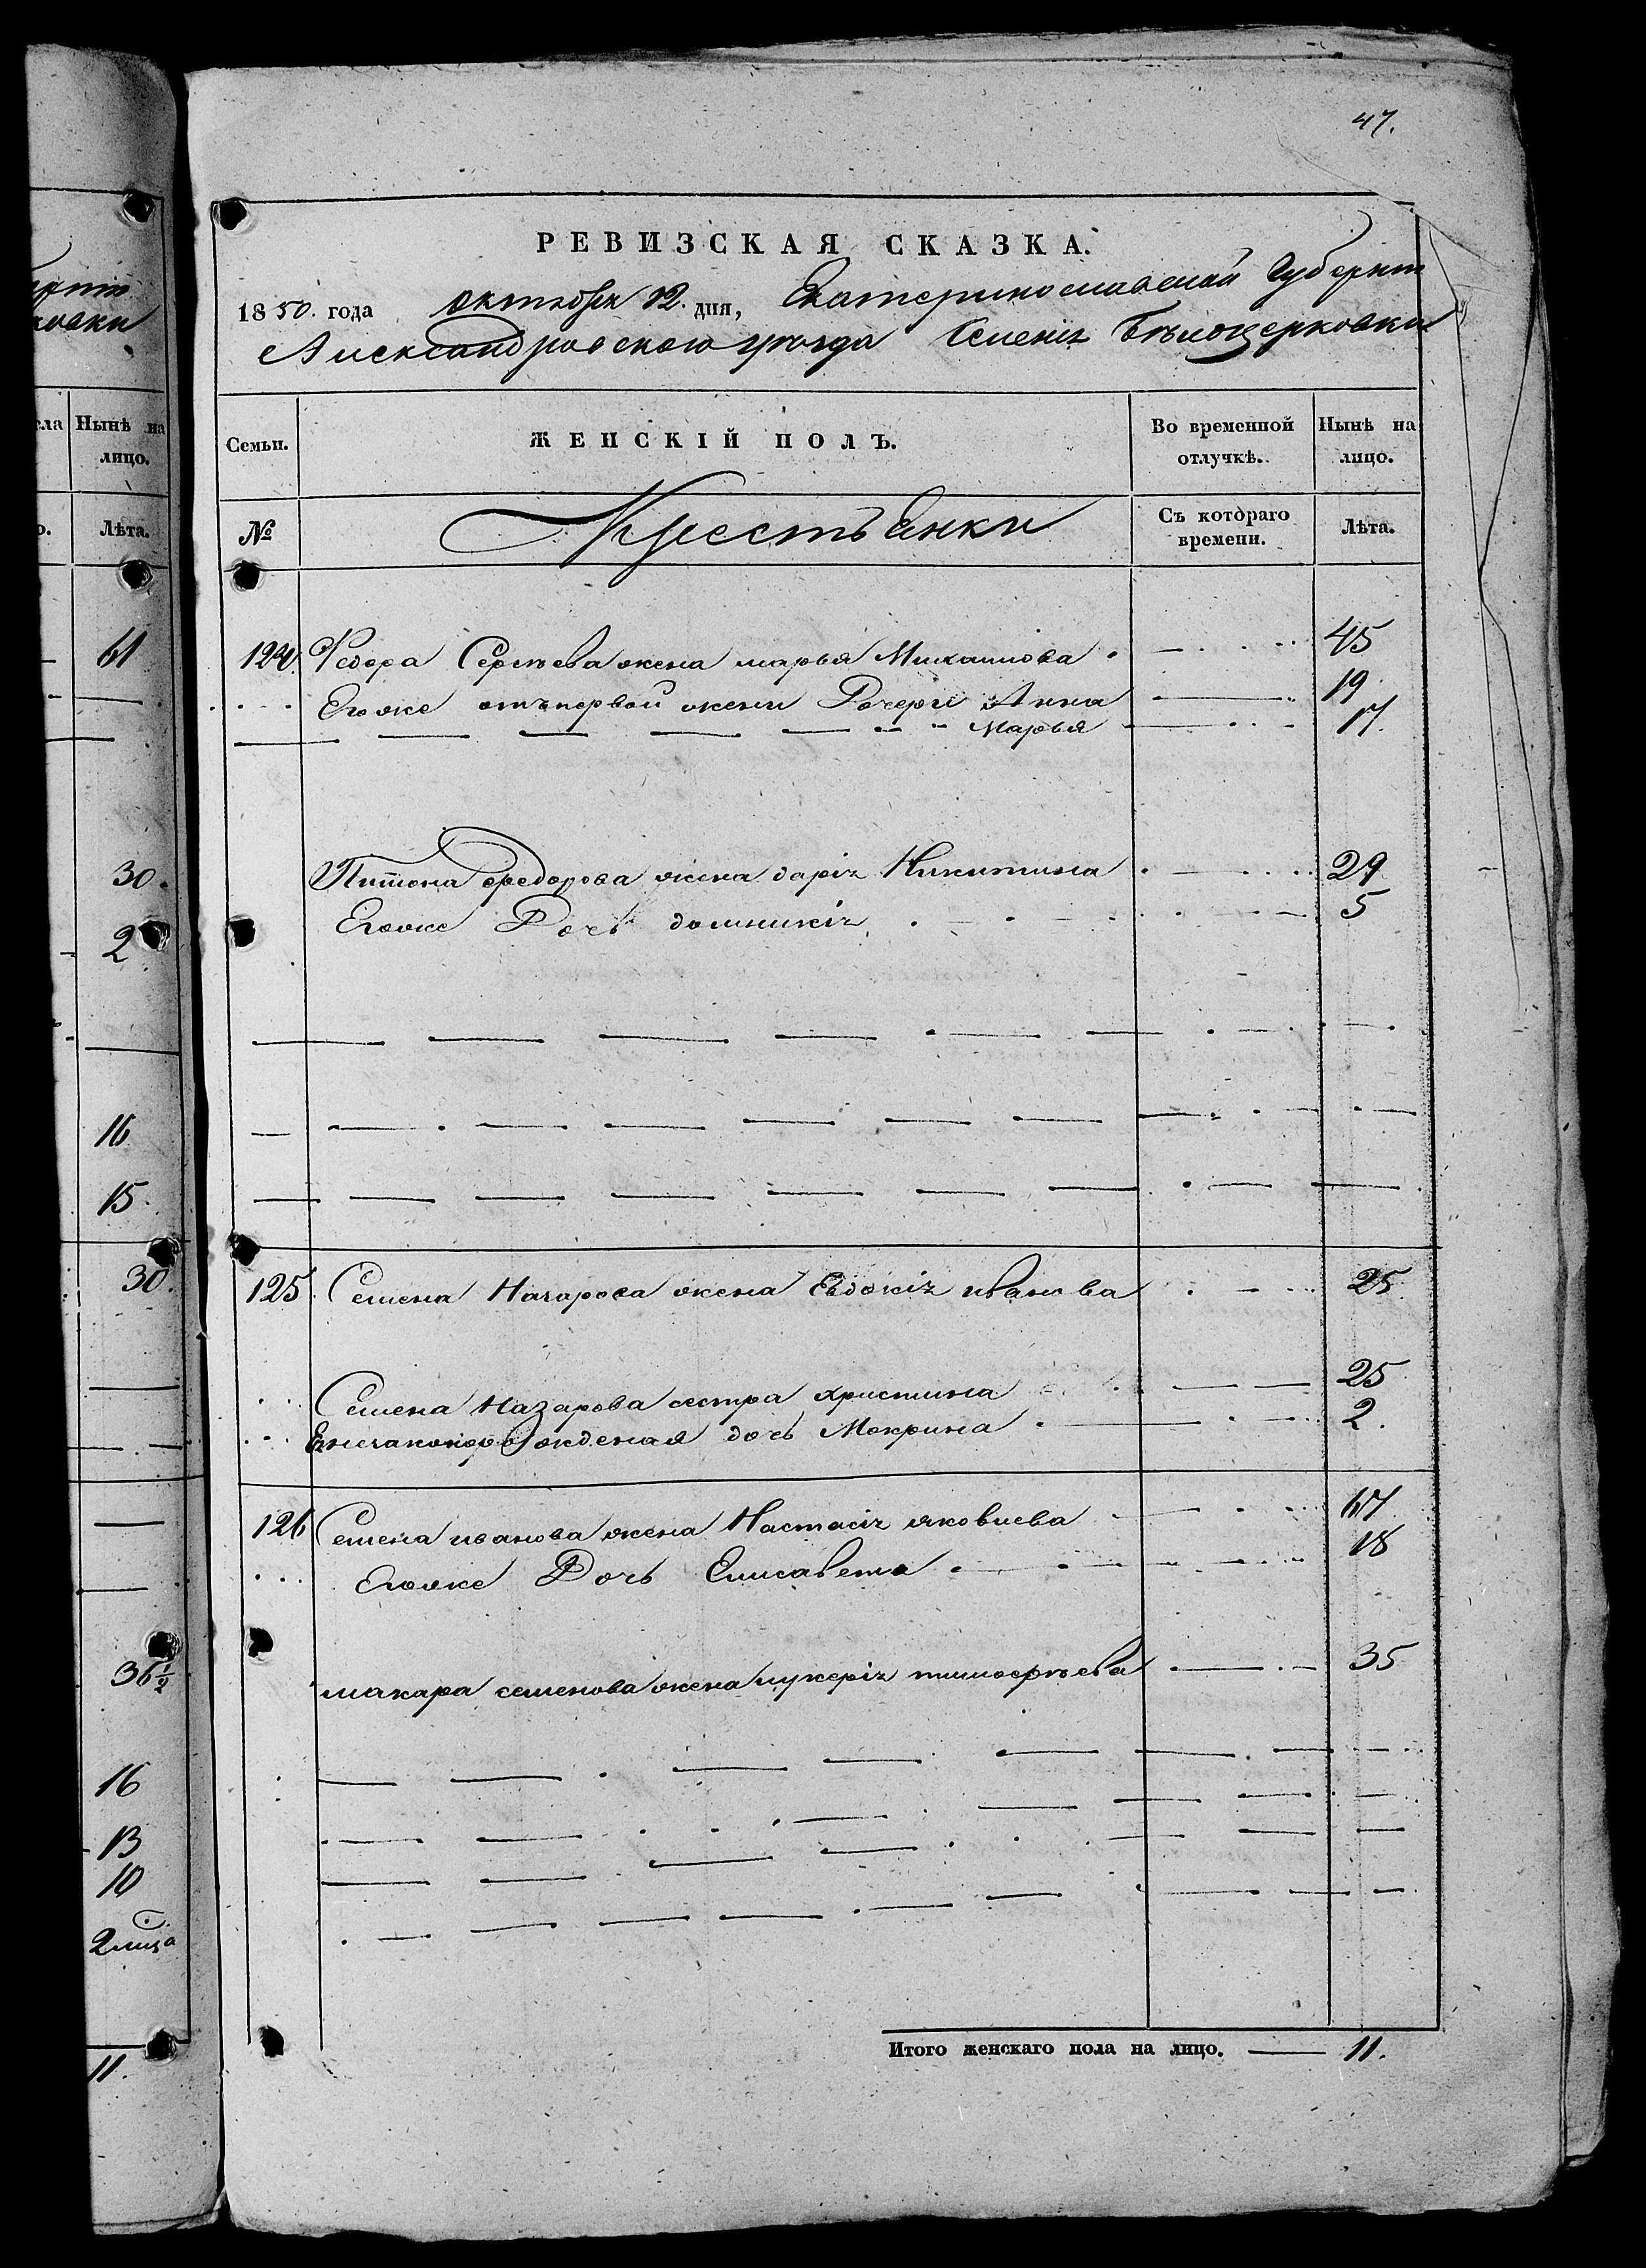 47.
рніи
ковки
РЕВИЗСКАЯ СКАЗКА.
1850. года октября 12. дня, Екатеринославской Губерніи
Александровского уезда Селенія Бѣлоцерковки
сла Нынѣ на лицо.
Семьи. ЖЕНСКІЙ ПОЛЪ. Во временной отлучкѣ. Нынѣ на лицо.
о. Лѣта.
№ Крестьянки Съ котораго времени. Лѣта.
61
124. Федора Сергѣева жена марья Михаилова 45
Егоже отъ первой жени Дочери Анна 19
Марья 17.
30.
Федорова жена дарія Никитина 29
2
Егоже Дочь домникія 5
16
15.
30.
125 Семена Назарова жена Евдокія иванова 25
Семена Назарова сестра христина 25
Ея незаконорожденая дочь Мокрина 2.
126 Семена иванова жена Настасія яковлева 67
Егоже Дочь Елисавета 18
36 1/2
макара семенова жена лукерія тимофѣева 35
16
13
10
2 лица
Итого женскаго пола на лицо. 11.
11.